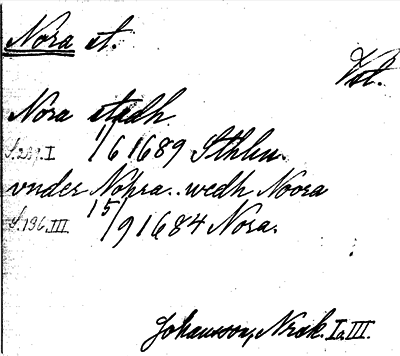 Nora st.
Vst.
Nora stadh.
1/6 1689 Sthlm.
vnder Nohra. wedh Noora
S. 196. III. 15/9 1684 Nora.
Johansson, Nrak. I, III.